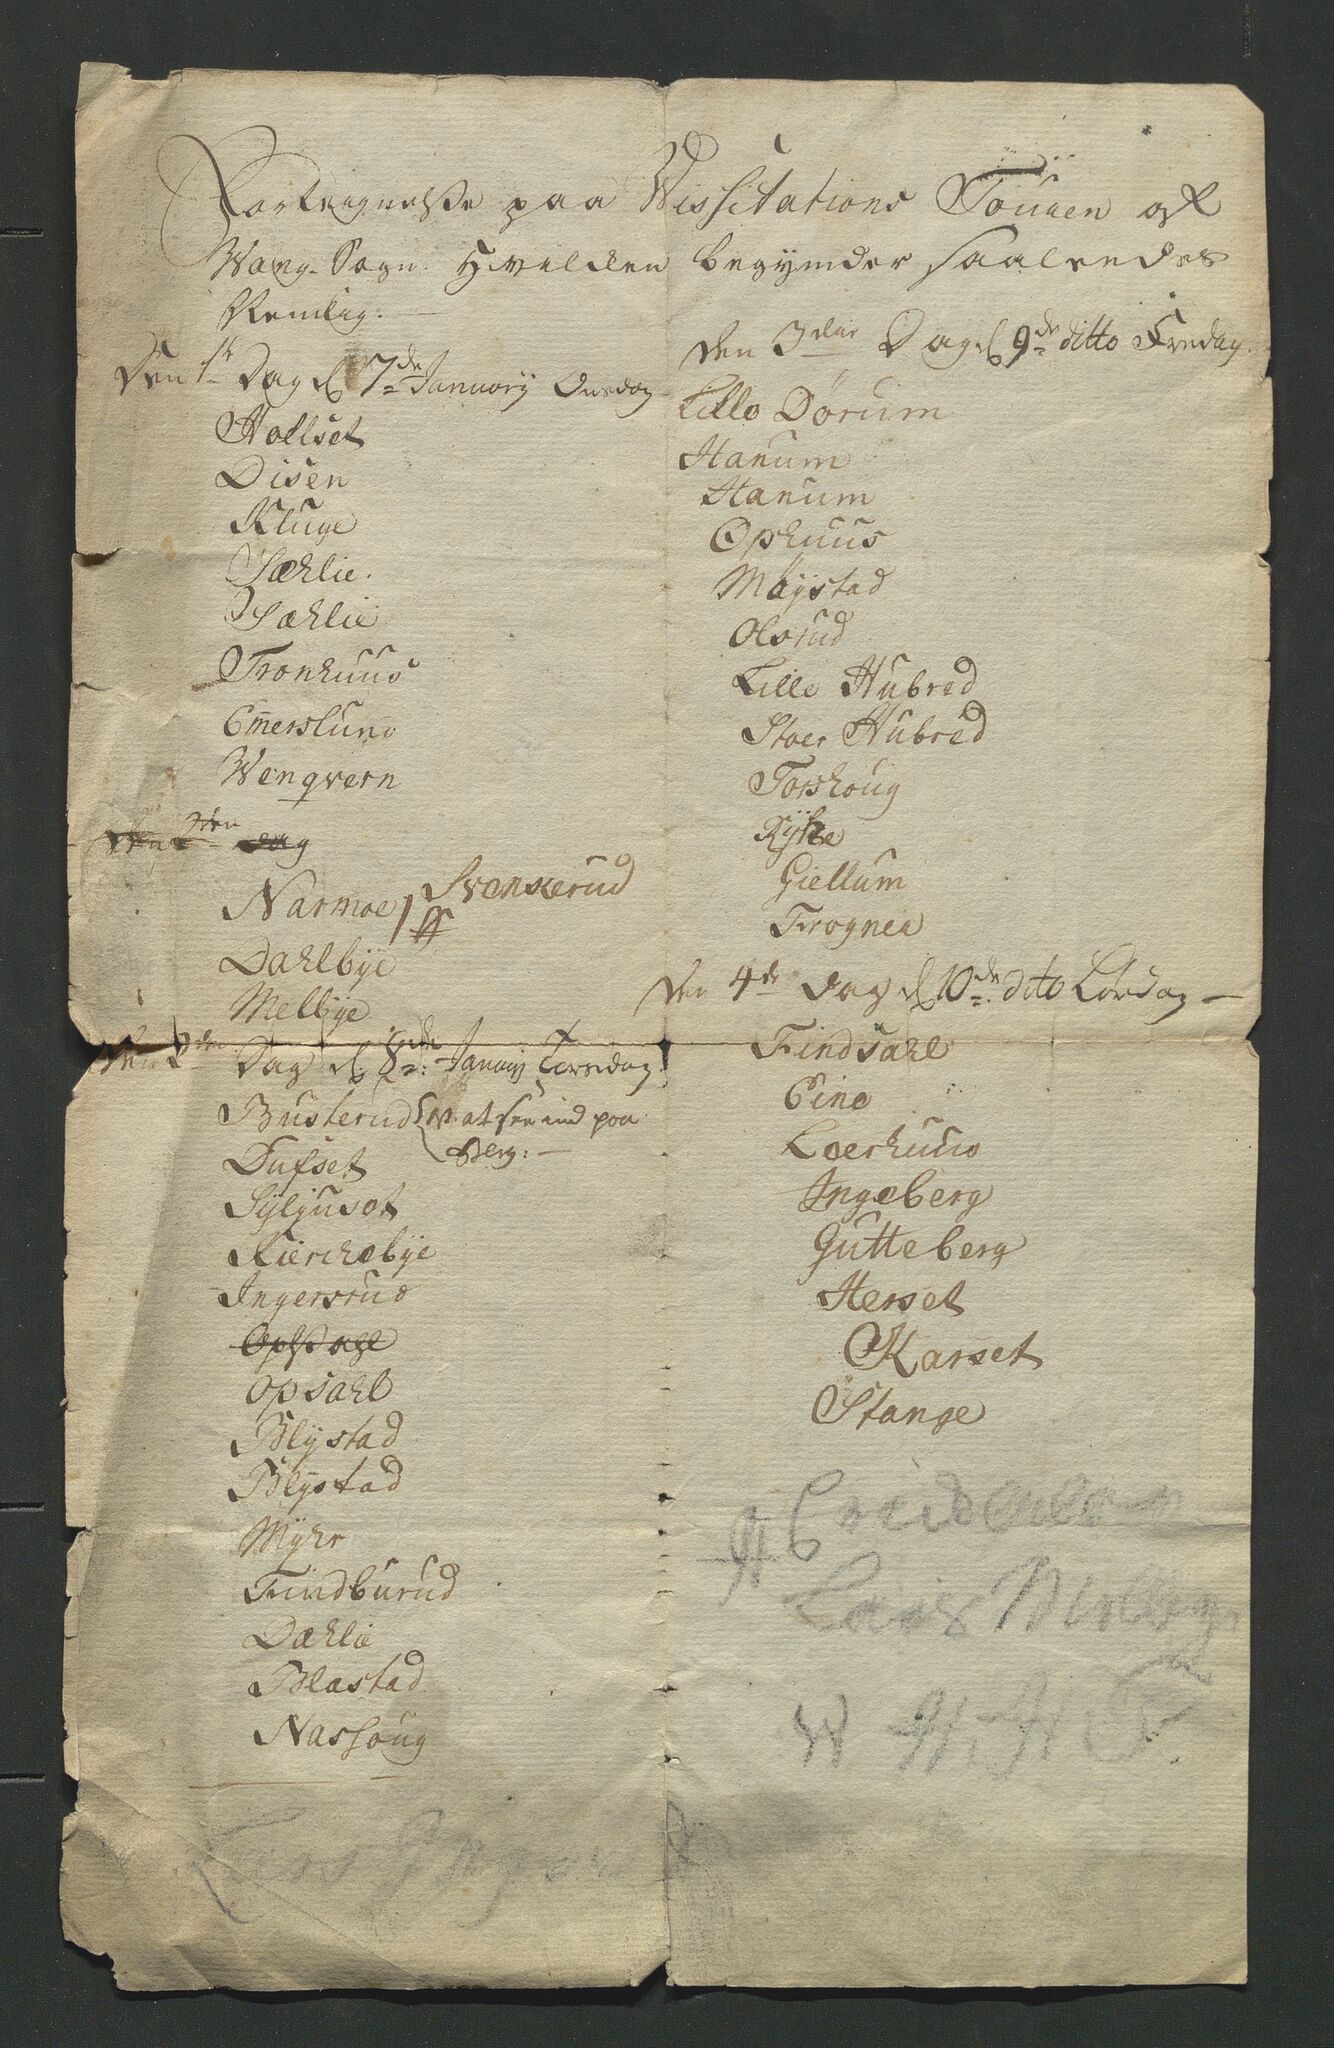 Forteignelse paa Vissitations Touren af
Wang Sogn. Hvilcken begynder saaledes
Nemlig:
Den 1te Dag d 7de January Onsdag
Hollset
Disen
Kluge
Sæhlie.
Sæhlie
Tronhuus
Emerslund
Wenqvern
Den 2den dag
Narmoe / Svenskerud
Dahlbye
Melbye
Den 2den Dag d 8de January Torsdag
Busterud at see ind paa
Berg:
Tufset
Syljuset
Kierckebye
Ingersrud
Opsahl
Blystad
Blystad
Myhr
Findburud
Dæhlie
Blæstad
Nashoug
Lars
Den 3die Dag d 9de ditto Fredag
Lille Dørum
Hanum
Hanum
Ophuus
Møystad
Olsrud
Lille Hubred
Stoer Hubred
Torshoug
Rykke
Giellum
Frogner
Den 4de Dag d 10de dito Lørdag
Findsahl
Eine
Loerhuud
Ingeberg
Gutteberg
Herset
Karset
Stange
Lars